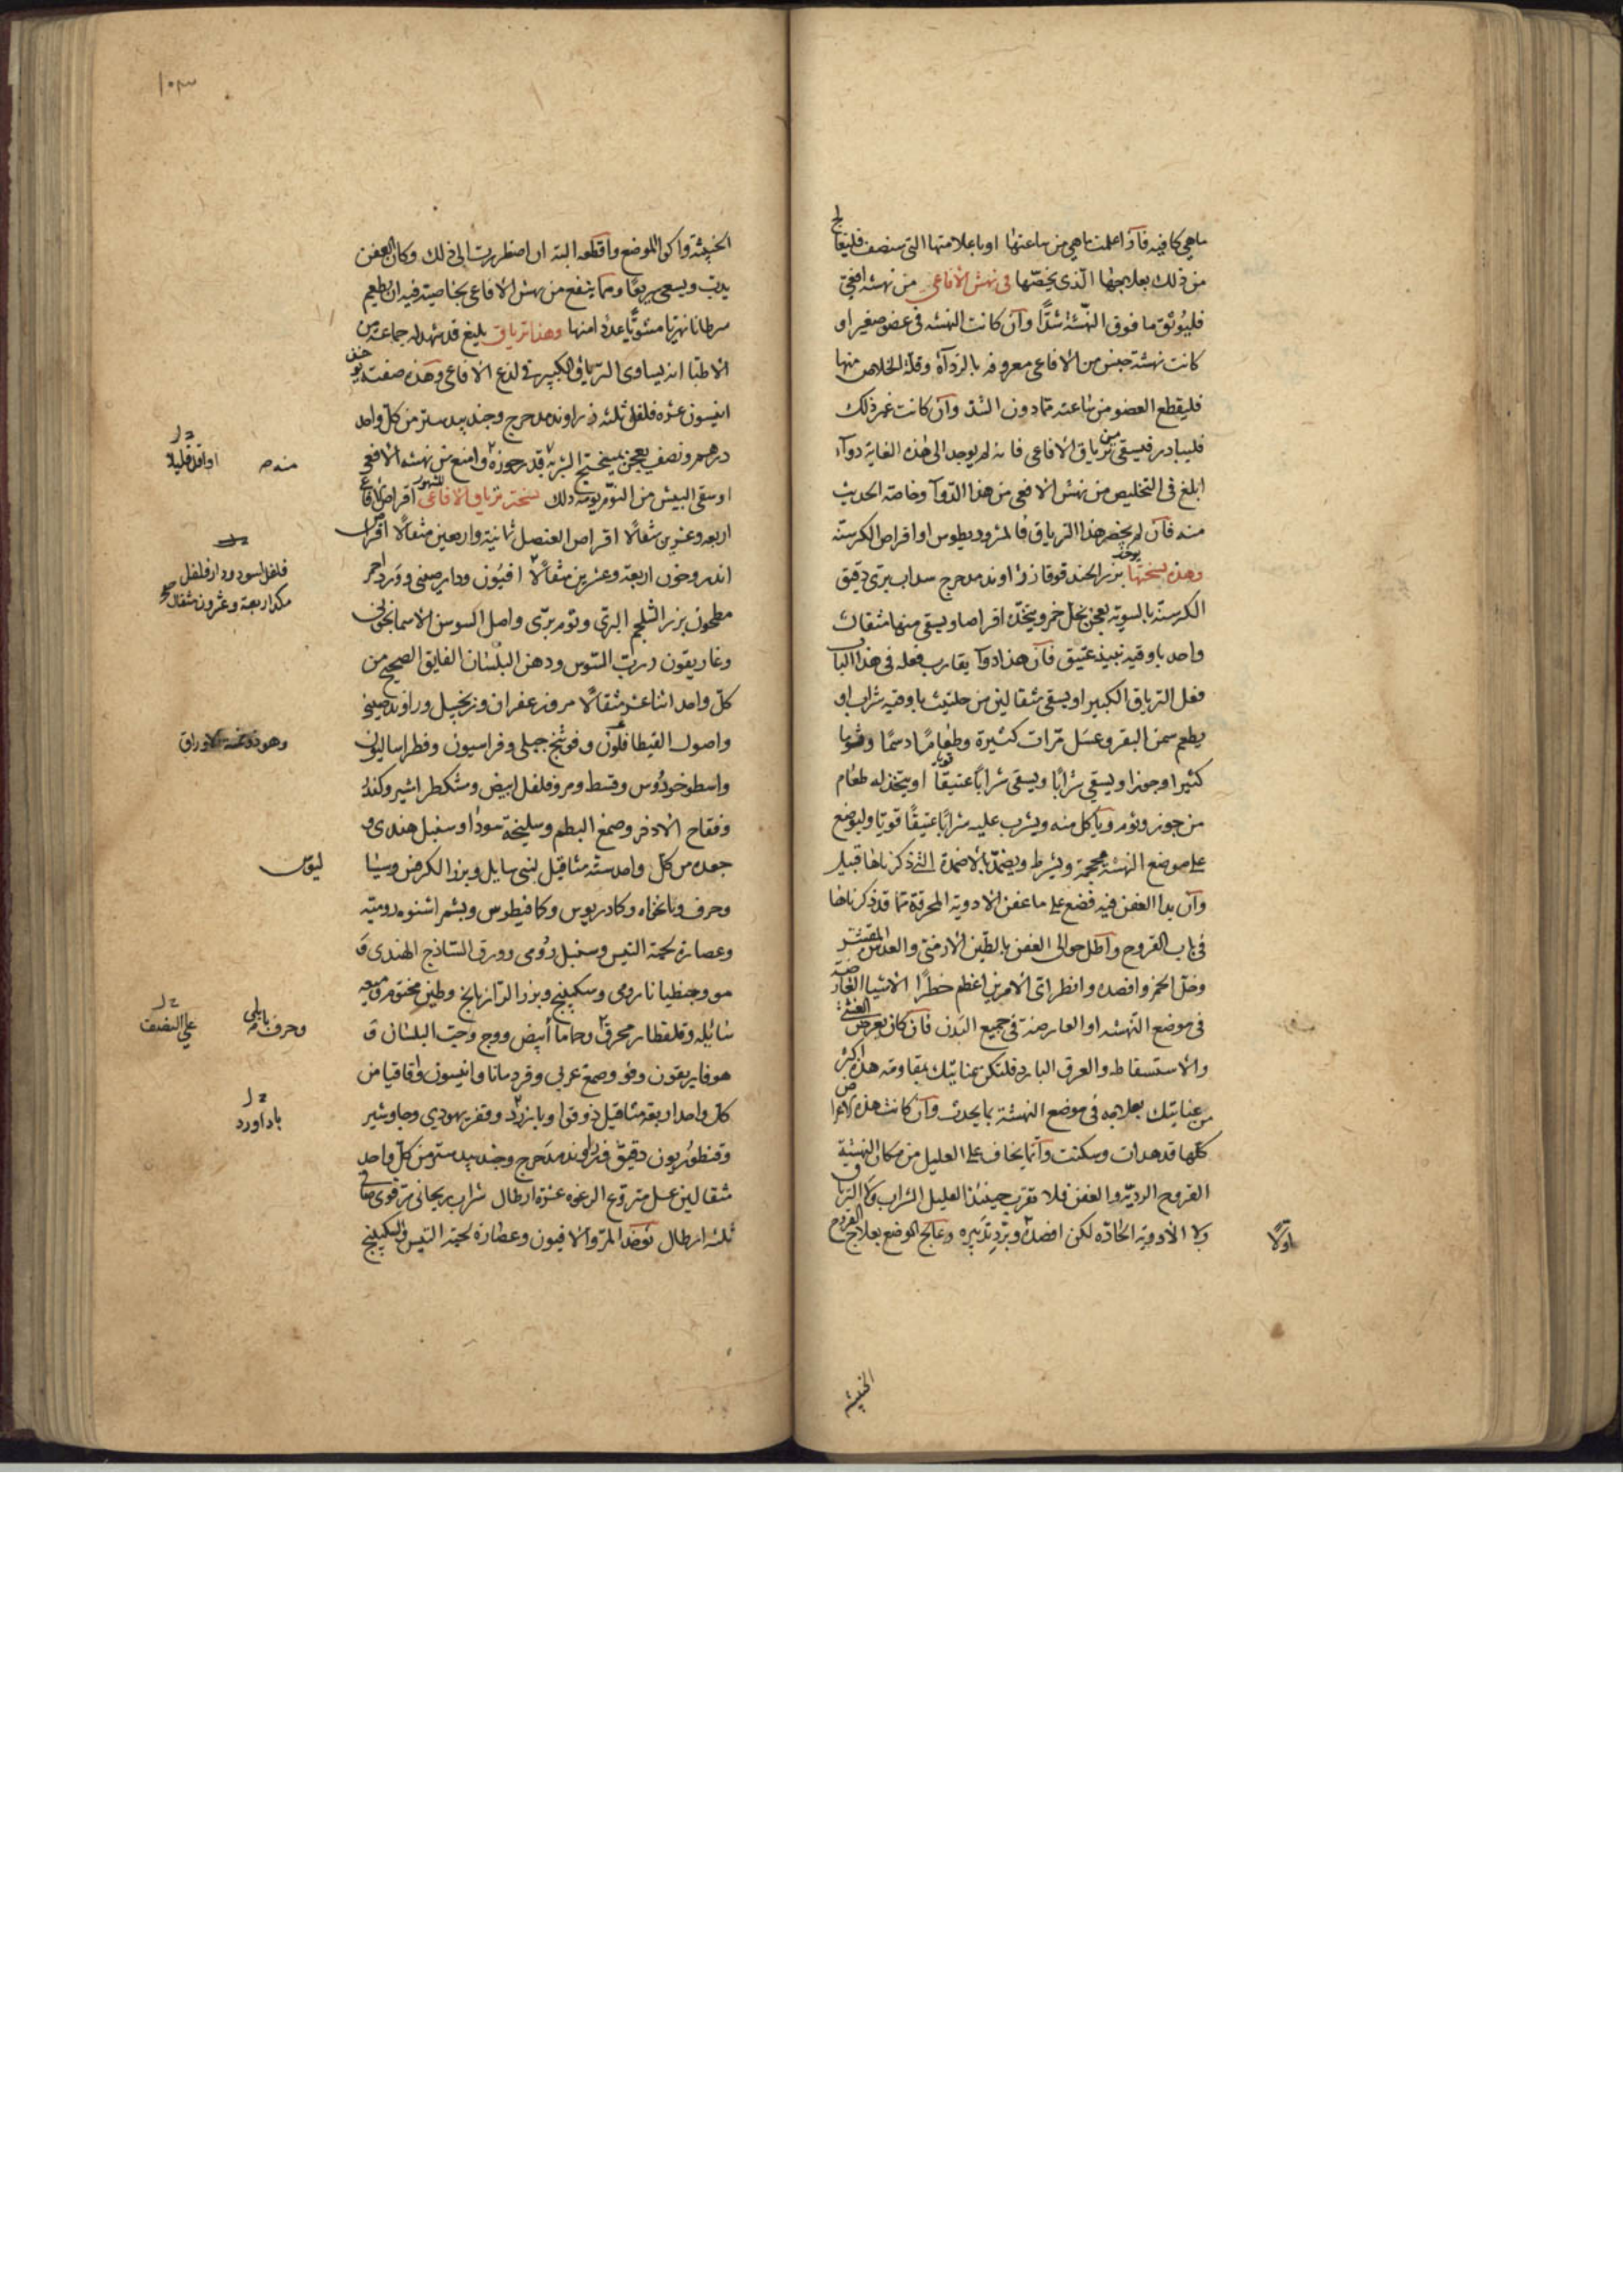 ماهي كافيه فاذا علمت ماهي من ساعتها او باعلامتها التي سنصف فليعالج
من ذلك بعلاجها الذى يخصها فى نهش الافاعي من نهشه افعى
فليوثق ما فوق النهشة شدا وان كانت النهشه فى عضو صغير او
كانت نهشة جنس من الافاعى معروفه بالرداة وقلة الخلاص منها
فليقطع العضو من ساعته مما دون الشد وان كانت غير ذلك
فليبادر فيسقى من ترياق الافاعى فانه لم يوجد الى هذه الغاية دوآ
ابلغ فى التخليص من نهش الافعى من هذا الدوآ وخاصة الحديث
منه فان لم يحضر هذا الترياق فالمثروديطوس او اقراص الكرسنة
وهذه نسختها يوخذ بزر الحندقوقا زراوند مدحرج سداب برى دقيق
الكرسنة بالسوية يعجن بخل خمر ويتخذ اقراصا ويسقى منها مثقال
واحد باوقيه نبيذ عتيق فان هذا دوآ يقارب فعله فى هذا الباب
فعل الترياق الكبير او يسقى مثقالين من حلتيت باوقيه شراب او
يطعم سمن البقر وعسل مرات كثيرة وطعاما دسما وثوما
كثيرا وجوزا ويسقى شرابا ويسقى شرابا عتيقا قويا او يتخذ له طعام
من جوز وثوم وياكل منه ويشرب عليه شرابا عتيقا قويا وليوضع
على موضع النهشة محجمة ويشرط ويضمد بالاضمدة التى ذكرناها قبيل
وان بدا العفن فيه فضع على ما عفن الادويه المحرقة مما قد ذكرناها
فى باب القروح واطل حوالى العفن بالطين الارمنى والعدس المقشر
وخل الخمر وافصده وانظر اى الامرين اعظم خطرا الاشيا العارضة
فى موضع النهشه او العارضة فى جميع البدن فان كان يعرض الغشى
والاستسقاط والعرق البارد فلتكن عنايتك بمقاومة هذه اكثر
من عنايتك بعلاجه فى موضع النهشة بما يحدث وان كانت هذه الاعراض
كلها قد هدات وسكنت وانما يخاف على العليل من مكان النهشة
القروح الردية والعفن فلا تقرب حينئذ العليل الشراب ولا الترياق
ولا الادوية الحادة لكن افصده وبرد تدبيره وعالج الموضع بعلاج القروح
اولا
الخبيثة
١٠٣
الخبيثة واكو الموضع واقطعه البتة ان اضطررت الى ذلك وكان العفن
يدب ويسعى سريعا ومما ينفع من نهش الافاعى بخاصية فيه ان يطعم
سرطانا نهريا مشويا عددا منها وهذا ترياق بليغ قد شهد له جماعة من
الاطبا انه يساوى الترياق الكبير فى لذع الافاعى وهذه صفته يوخذ
انيسون عشره فلفل ثلثه زراوند مدحرج وجندبيدستر من كل واحد
درهم ونصف يعجن بميبختج الشربة قدر جوزة وامنع من نهشه الافعى
او سقى البيش من النوم يومه ذلك نسخة ترياق الافاعى المشهور اقراص الافاعى
اربعه وعشرين مثقالا اقراص العنصل ثمانية واربعين مثقالا اقراص
اندروخون اربعة وعشرين مثقالا افيون ودارصينى وورد احمر
مطحون بزر الشلجم البرى وثوم برى واصل السوسن الاسمانجونى
وغاريقون ورب السوس ودهن البلسان الفايق الصحيح من
كل واحد اثنا عشر مثقالا مر وزعفران وزنجبيل وراوند صينى
واصول القنطافلون وفوتنج جبلى وفراسيون وفطراساليون
واسطوخودوس وقسط ومر وفلفل ابيض ومشكطرامشير وكندر
وفقاح الاذخر وصمغ البطم وسليخة سودا وسنبل هندى و
جعده من كل واحد ستة مثاقيل لبنى سايل وبزر الكرفس وسيسا
وحرف ونانخواه وكمادريوس وكمافيطوس
وعصارة لحية التيس وسنبل رومى وورق الساذج الهندى و
مو وجنطيانا رومى وسكبينج وبزر الرازيانج وطين مختوم وميعه
سائلة وقلقطار محرق وحماما ابيض ووج وحب البلسان و
هوفاريقون وفو وصمغ عربى وقردمانا وانيسون واقاقيا من
كل واحد اربعة مثاقيل دوقو او بارزد وقفر يهودى وجاوشير
وقنطوريون دقيق وزراوند مدحرج وجندبيدستر من كل واحد
مثقالين عسل منزوع الرغوه عشرة ارطال شراب ريحانى قوى صافى
ثلثه ارطال توخذ المر والافيون وعصارة لحية التيس والسكبينج
او اقل قليلا
منه صه
فلفل اسود ودارفلفل
مكد اربعة وعشرون مثقال صح
وهو ذو خمسة الاوراق
ليوس
وحرف بابلى
على النصف
باداورد